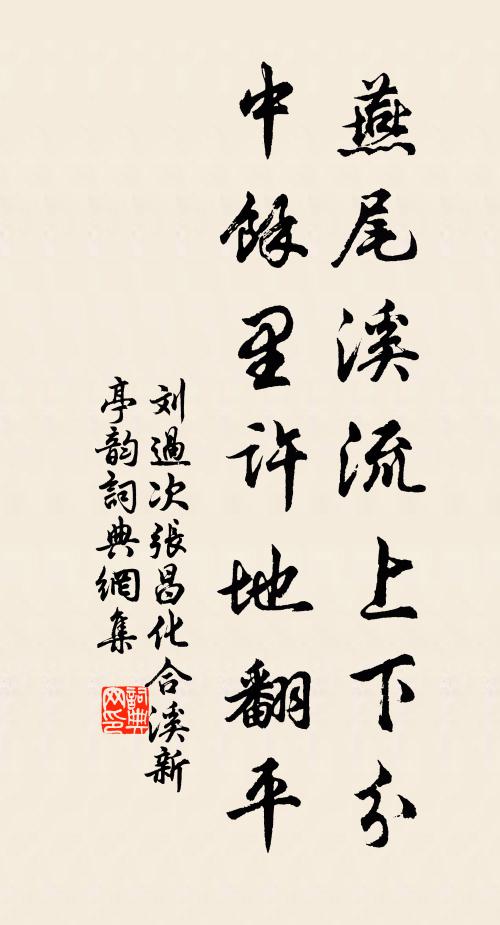 燕尾溪流上下分
中餘里許地翻平
刘過次張昌化合溪新
亭韵詞典網集
詞典
网印